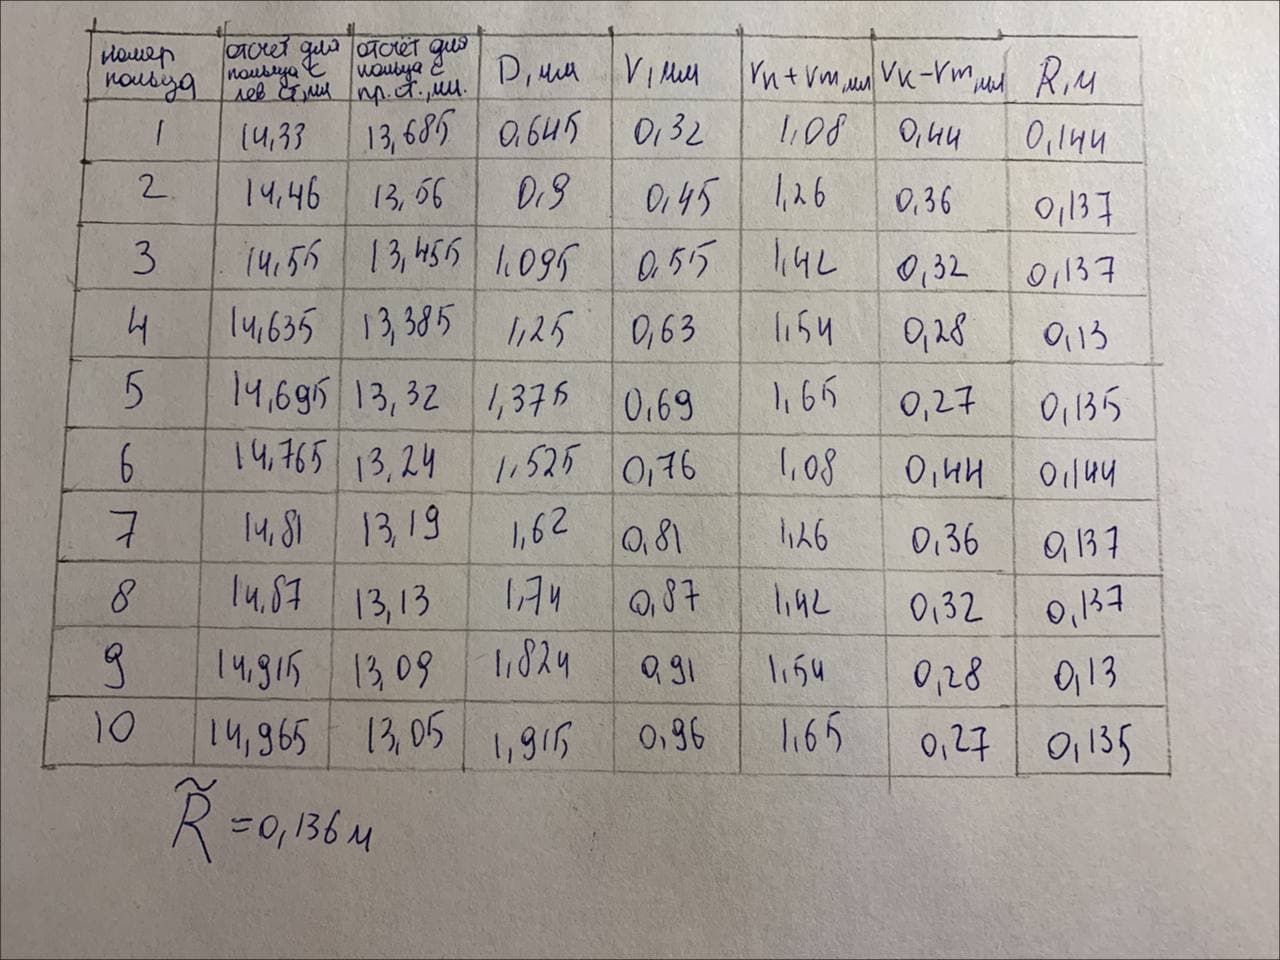 номер кольца | отсчёт для кольца с лев ст, мм | отсчёт для кольца с пр. ст., мм. | D, мм | r, мм | rк + rm, мм | rк - rm, мм | R, м
1 | 14,33 | 13,685 | 0,645 | 0,32 | 1,08 | 0,44 | 0,144
2 | 14,46 | 13,56 | 0,9 | 0,45 | 1,26 | 0,36 | 0,137
3 | 14,55 | 13,455 | 1,095 | 0,55 | 1,42 | 0,32 | 0,137
4 | 14,635 | 13,385 | 1,25 | 0,63 | 1,54 | 0,28 | 0,13
5 | 14,695 | 13,32 | 1,375 | 0,69 | 1,65 | 0,27 | 0,135
6 | 14,765 | 13,24 | 1,525 | 0,76 | 1,08 | 0,44 | 0,144
7 | 14,81 | 13,19 | 1,62 | 0,81 | 1,26 | 0,36 | 0,137
8 | 14,87 | 13,13 | 1,74 | 0,87 | 1,42 | 0,32 | 0,137
9 | 14,915 | 13,09 | 1,824 | 0,91 | 1,54 | 0,28 | 0,13
10 | 14,965 | 13,05 | 1,915 | 0,96 | 1,65 | 0,27 | 0,135
R̃ = 0,136 м